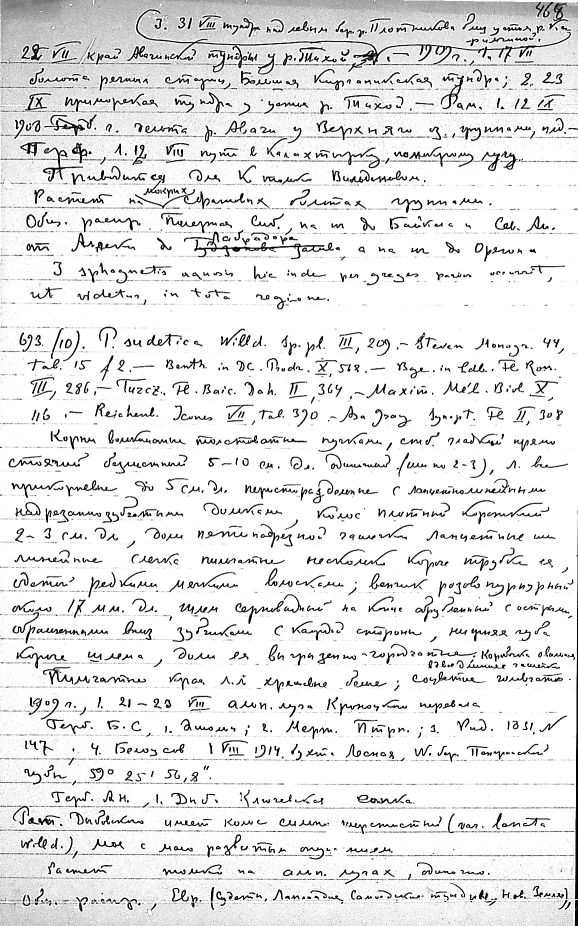 468
3. 31 VIII тундра над левым бер. р. Плотникова близ устья р.
22 VII, край Авачинской тундры у р. Тихой — 1909 г., 1. 17 VII
болота речная старица, Большая тундра; 2. 23
IX приморская тундра у устья р. Тихой. — Рам. 1. 12 IX
1908 г. р. Авачи у Верхняго группами,
1. 12 VIII пути в Калахтырку, по мокрому лугу.
Приводится для Камчатки Вильденовым.
Растет на мокрых сфагновых болотах группами.
Общ. распр. Сиб., на юг до Байкала и Сев. Ам.
от Аляски до Лабрадора, а на юг до Орегона
In sphagnetis aquosis hic inde per greges parvos occurrit,
ut videtur, in tota regione.
693. (10). P. sudetica Willd. Sp. pl. III, 209. — Steven Monogr. 44,
tab. 15 f 2. — Benth in DC. Prodr. X, 568. — Bge. in Ldb. Fl. Ross.
III, 286. — Turcz. Fl. Baic. Dah. II, 364. — Maxim. Mél. Biol. X,
116. — Reichenb. Icones VII, tab. 390. — Asa Gray Synopt. Fl. II, 308
Корни толстоватые пучками, стеб. гладкий прямо
стоячий безлистный 5–10 см. дл. одиночный (или по 2–3), л. все
прикорневые до 5 см. дл. перисторазделенные с ланцетнолинейными
надрезаннозубчатыми дольками, колос плотный короткий
2–3 см. дл., доли пятинадрезной чашечки ланцетные или
линейные слегка пильчатые несколько короче трубки ея,
одетой редкими мелкими волосками; венчик розовопурпурный
около 17 мм. дл., шлем серповидный на конце обрубленный с острыми,
обращенными вниз зубчиками с каждой стороны, нижняя губа
короче шлема, доли ея выгрызенно-городчатые. Коробка овальная
вдвое длиннее чашечки
Пильчатые края л. л. хрящевые белые; соцветие
1909 г., 1. 21–23 VIII альп. луга Кроноцкого перевала
Герб. Б.С., 1. 2. Мерт. Птрп.; 3. Рид. 1831, N
147; 4. Белоусов 1 VIII 1914, бухта Лесная, W. бер. Пенжинской
губы, 59° 25' 56,8".
Герб. А.Н., 1. Дыб. Ключевская сопка.
Раст. Дыбовского имеет колос сильно шерстистый (var. lanata
Willd.), моя с мало развитым опушением
Растет только на альп. лугах, одиночно.
Общ. распр., Евр. (Судеты, Лапландия, Самоедские тундры, Нов. Земля),